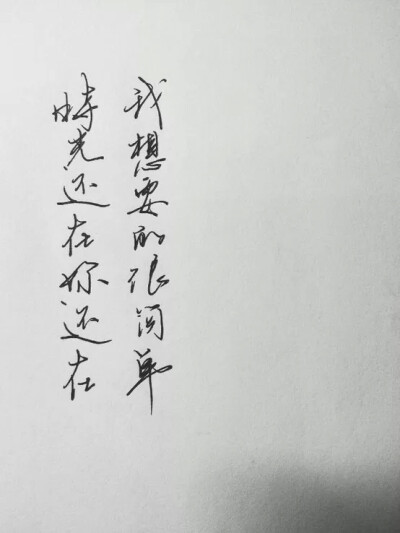 我想要的很简单
时光还在你还在